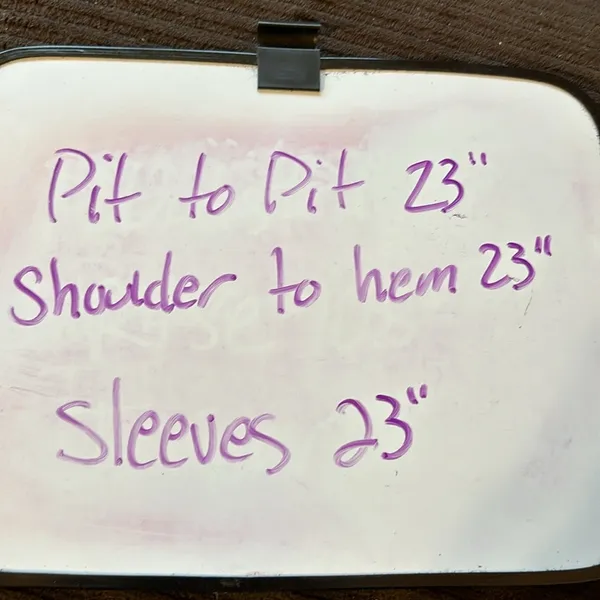 Pit to Pit 23"
Shoulder to hem 23"
Sleeves 23"